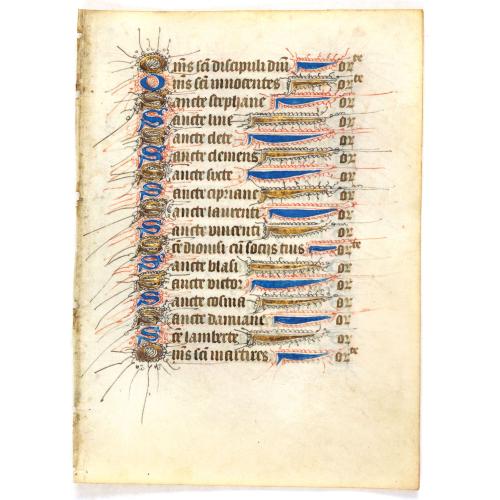 Oms sci discipuli dni orte
Oms sci innocentes orte
Sancte stephane or
Sancte line or
Sancte clete or
Sancte clemens or
Sancte sixte or
Sancte cipriane or
Sancte laurenti or
Sancte vincenti or
Sce dionisi cu socijs tuis orte
Sancte blasi or
Sancte victor or
Sancte cosma or
Sancte damiane or
Sce lamberte or
Oms sci martires orte